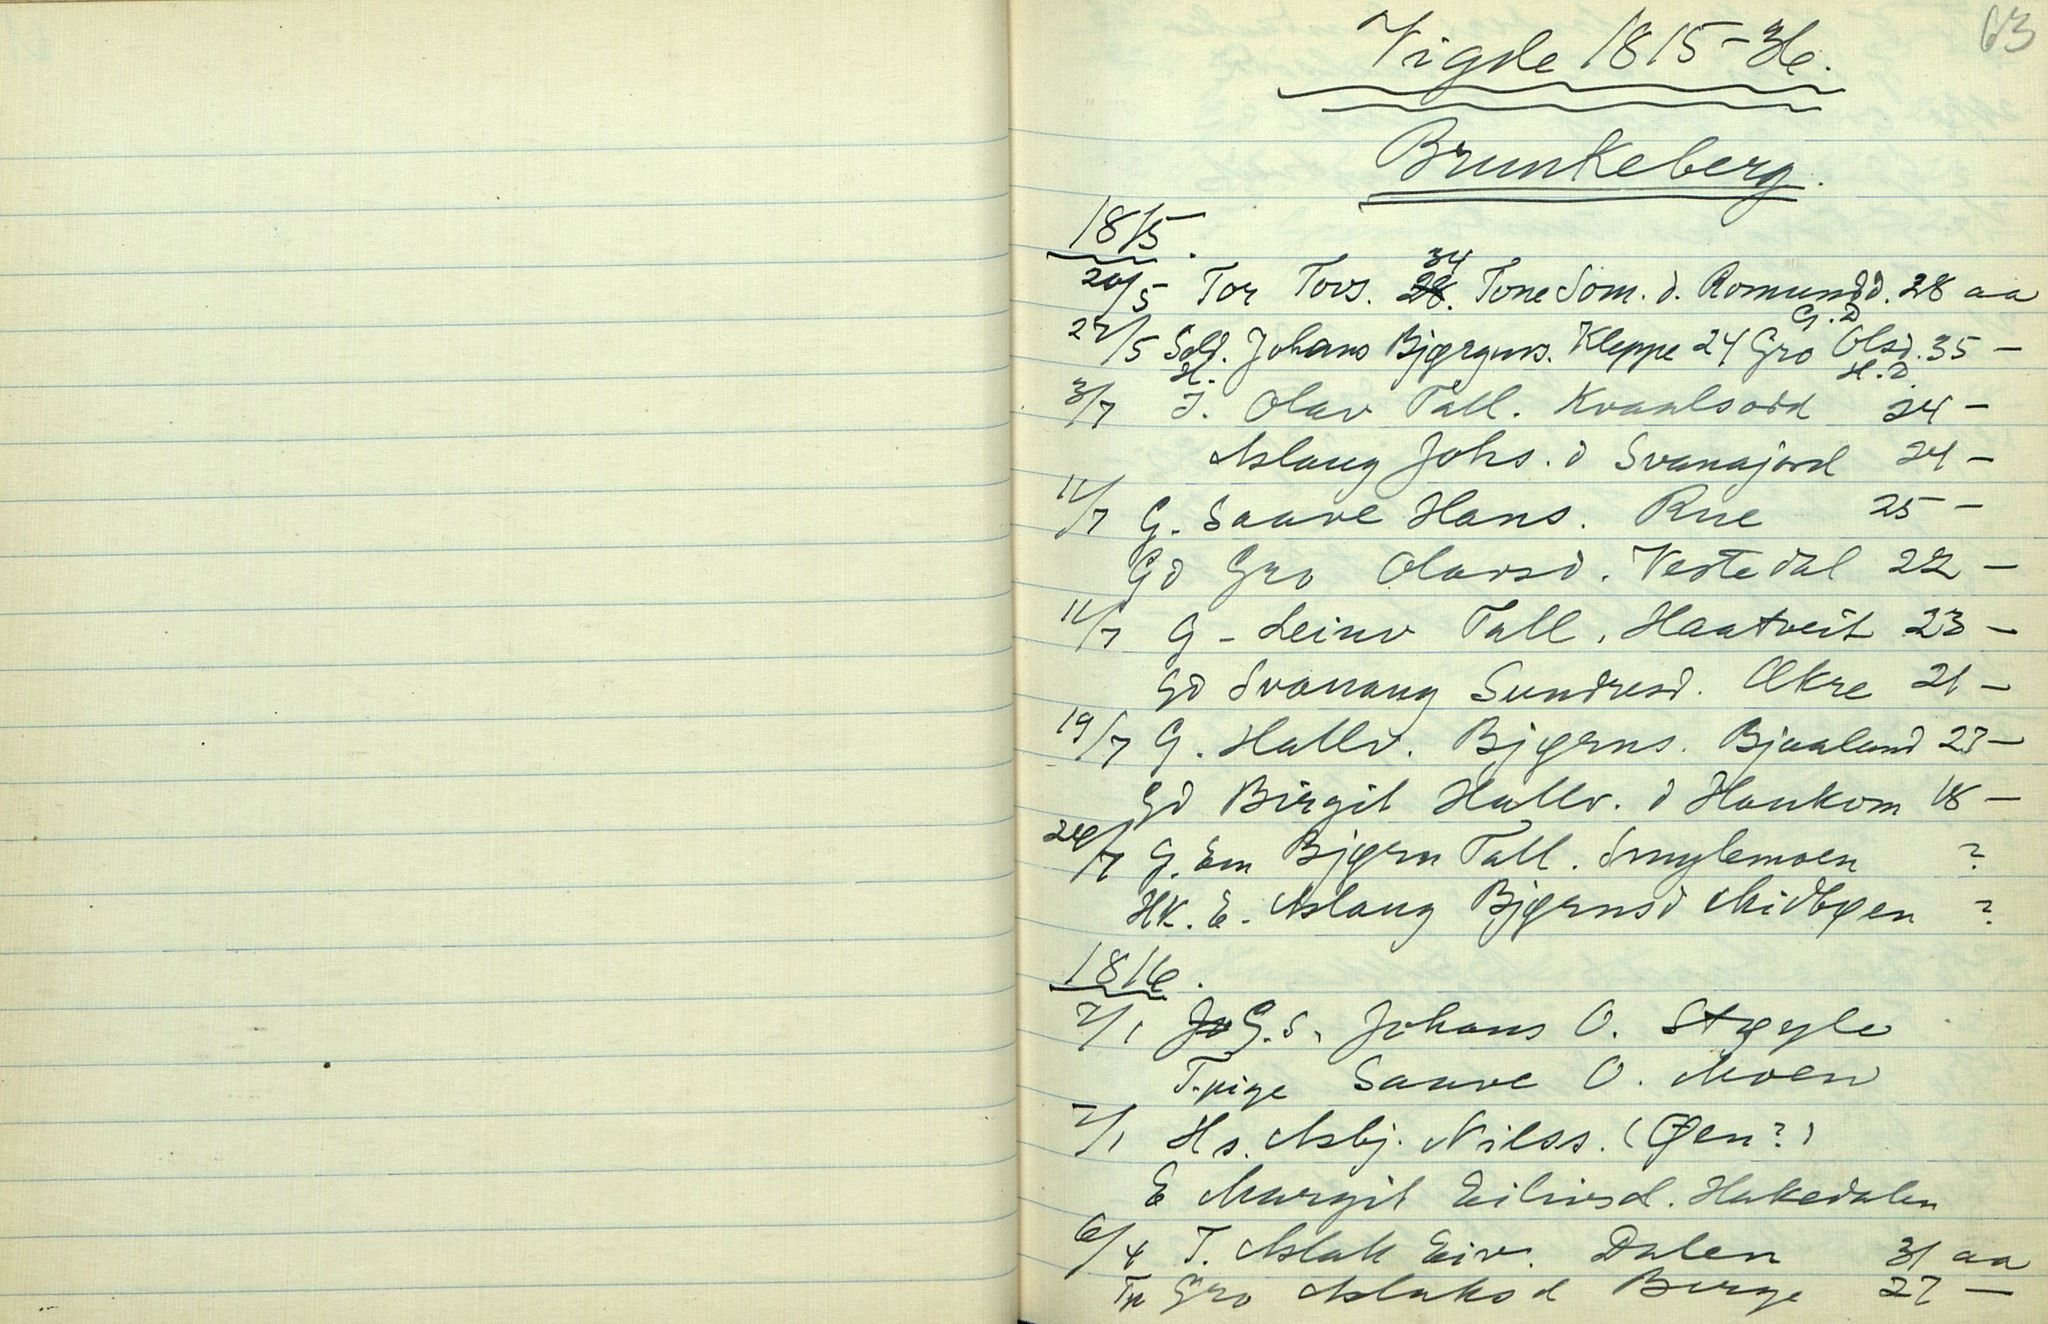 63
Vigde 1815-36.
Brunkeberg.
1815.
20/5 Tor Tovs. 34 28. Tone Som. d. Romundd. 28 aa
G. D
27/5 Sold. Johans Bjørgurs. Kleppe 24 Gro Olsd. 35 –
H. H. D
3/7 J. Olav Tall. Kvaalsodd 24 –
Aslaug Johs. d Svanajord 24 –
11/7 G. Saave Hans. Rue 25 –
Gd Gro Olavsd. Vestedal 22 –
11/7 G – Leiuv Tall. Haatveit 23 –
Gd Svanaug Sundresd. Økre 21 –
19/7 G. Hallv. Bjørns. Bjaaland 23 –
Gd Birgit Hallv. d Haukom 18 –
26/7 G. Em Bjørn Tall. Smylemoen ?
HK. E. Aslaug Bjørnsd Midbøen ?
1816.
2/1 G. S. Johans O. Støyle
T.pige Saave O. Moen
2/1 Hs. Asbj. Nilss. (Øen?)
E Margit Eilivsd. Hakedalen
6/4 T. Aslak Eiv. Dalen 31 aa
Tp Gro Aslaksd Berge 27 –